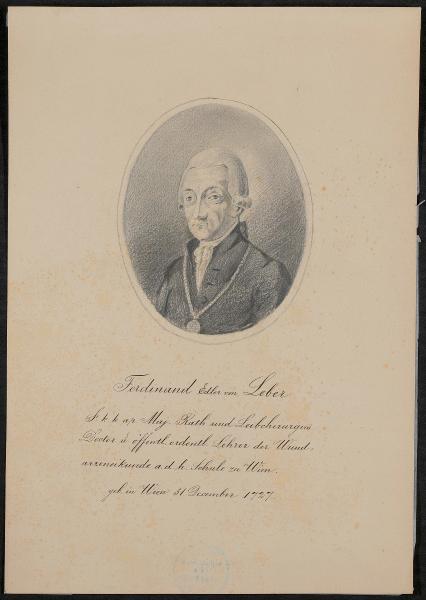 Ferdinand Edler von Leber
S. k. k. ap. Maj. Rath und Leibchirurgus
Doctor u öffentl. ordentl. Lehrer der Wund-
arzeneikunde a. d. h. Schule zu Wien.
geb. in Wien 31 December 1727.